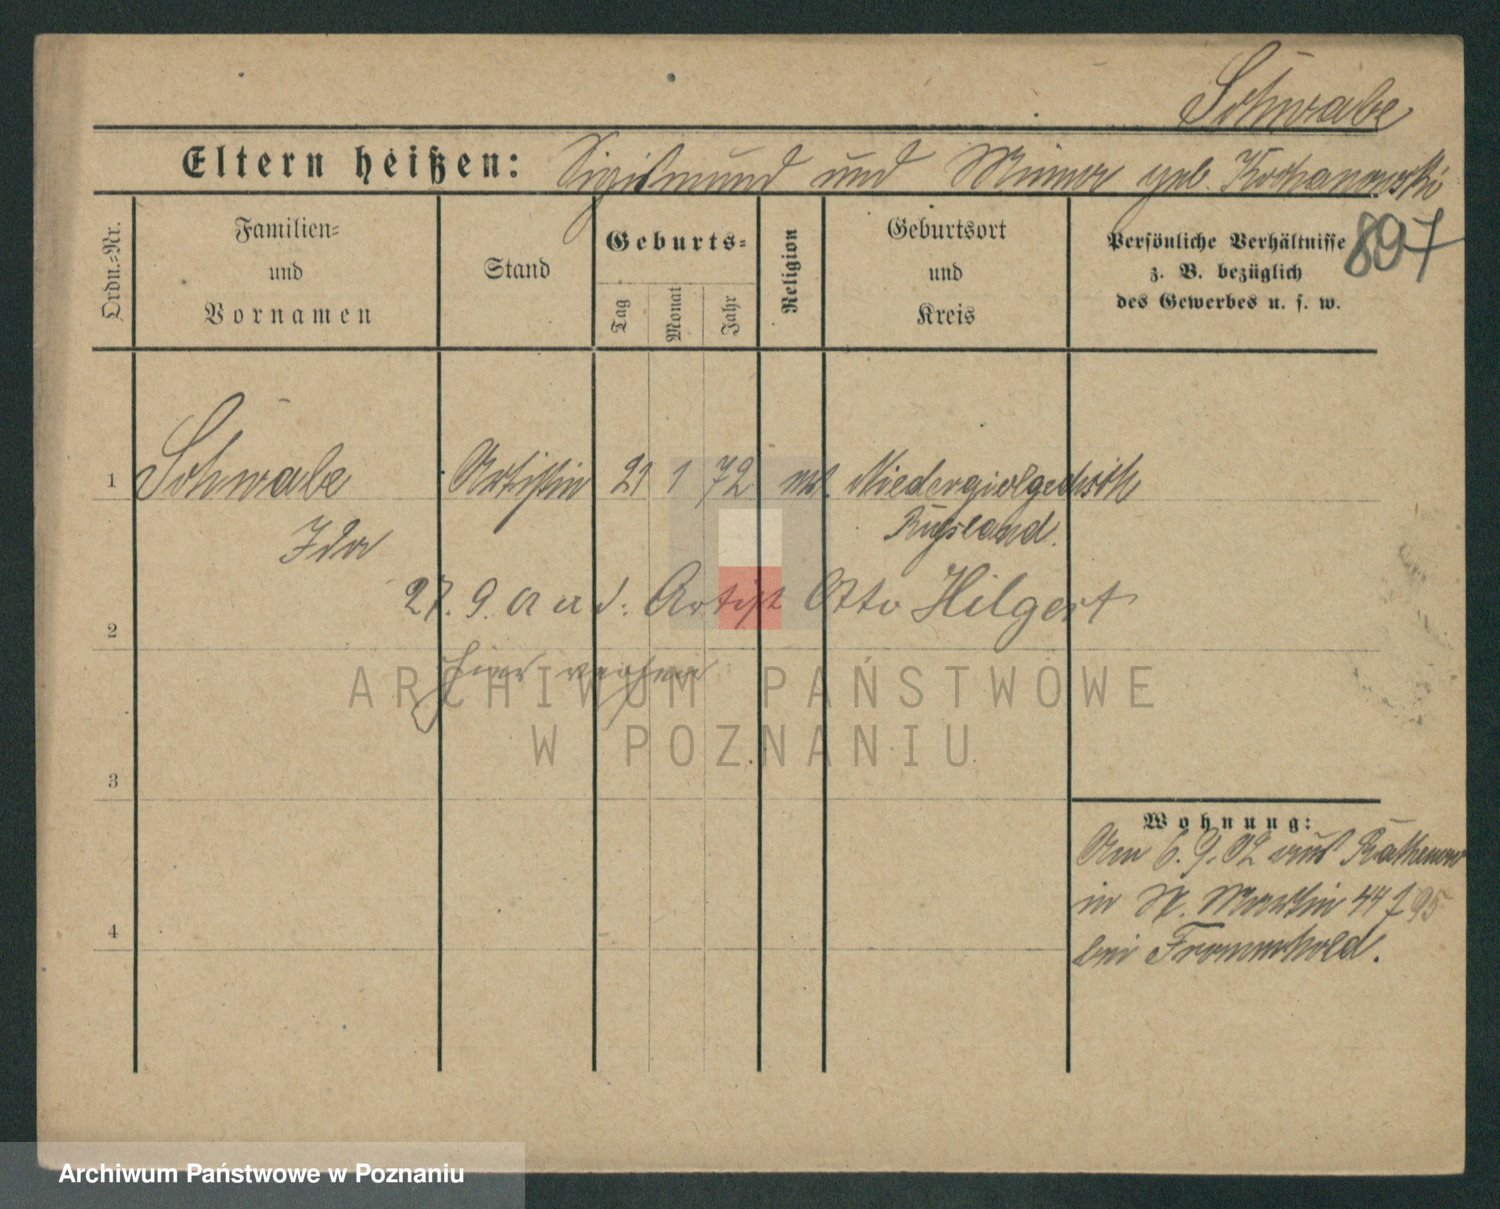 Schwabe
Eltern heißen: Sigismund und Minna geb. Kochanowski
897
Ordn.-Nr.
Familien-
und
Vornamen
Stand
Geburts-
Tag
Monat
Jahr
Religion
Geburtsort
und
Kreis
Persönliche Verhältnisse
z. B. bezüglich
des Gewerbes u. s. w.
1 Schwabe Artistin 21 1 72
Ida Rußland.
27. 9. Artist Otto Hilgert
2
hier
3
4
Wohnung:
Am 6. 9. 02 aus Rathenow
in St. Martin 44
bei Frommhold.
ARCHIWUM PAŃSTWOWE
W POZNANIU
Archiwum Państwowe w Poznaniu